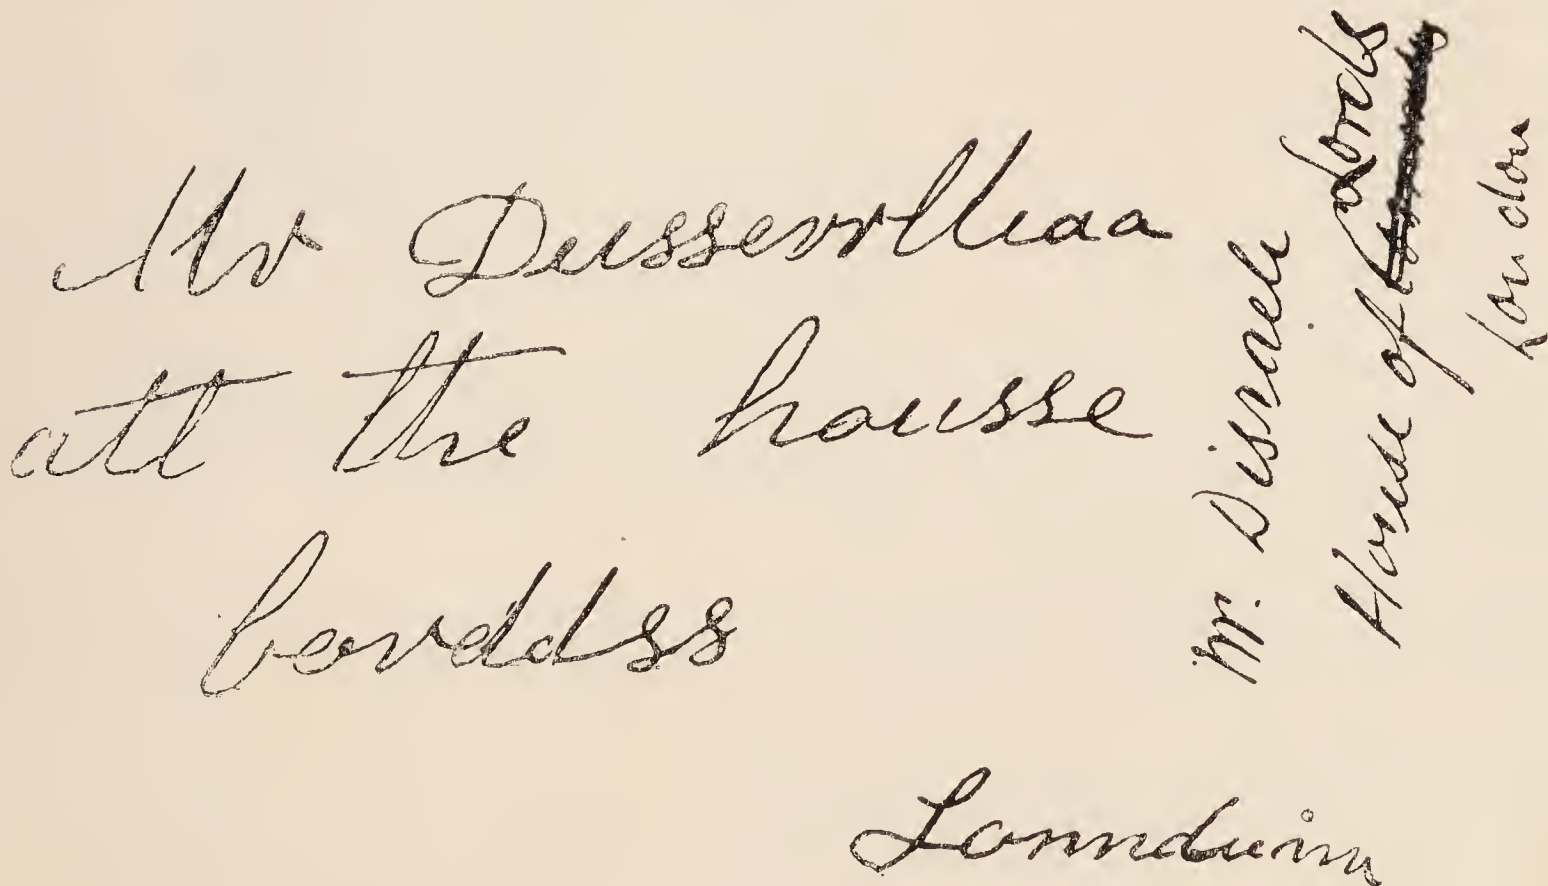 Mr Dusserrlliaa
att the housse
lorddss
Lonnduinn
Mr. Disraeli
House of Lords
London